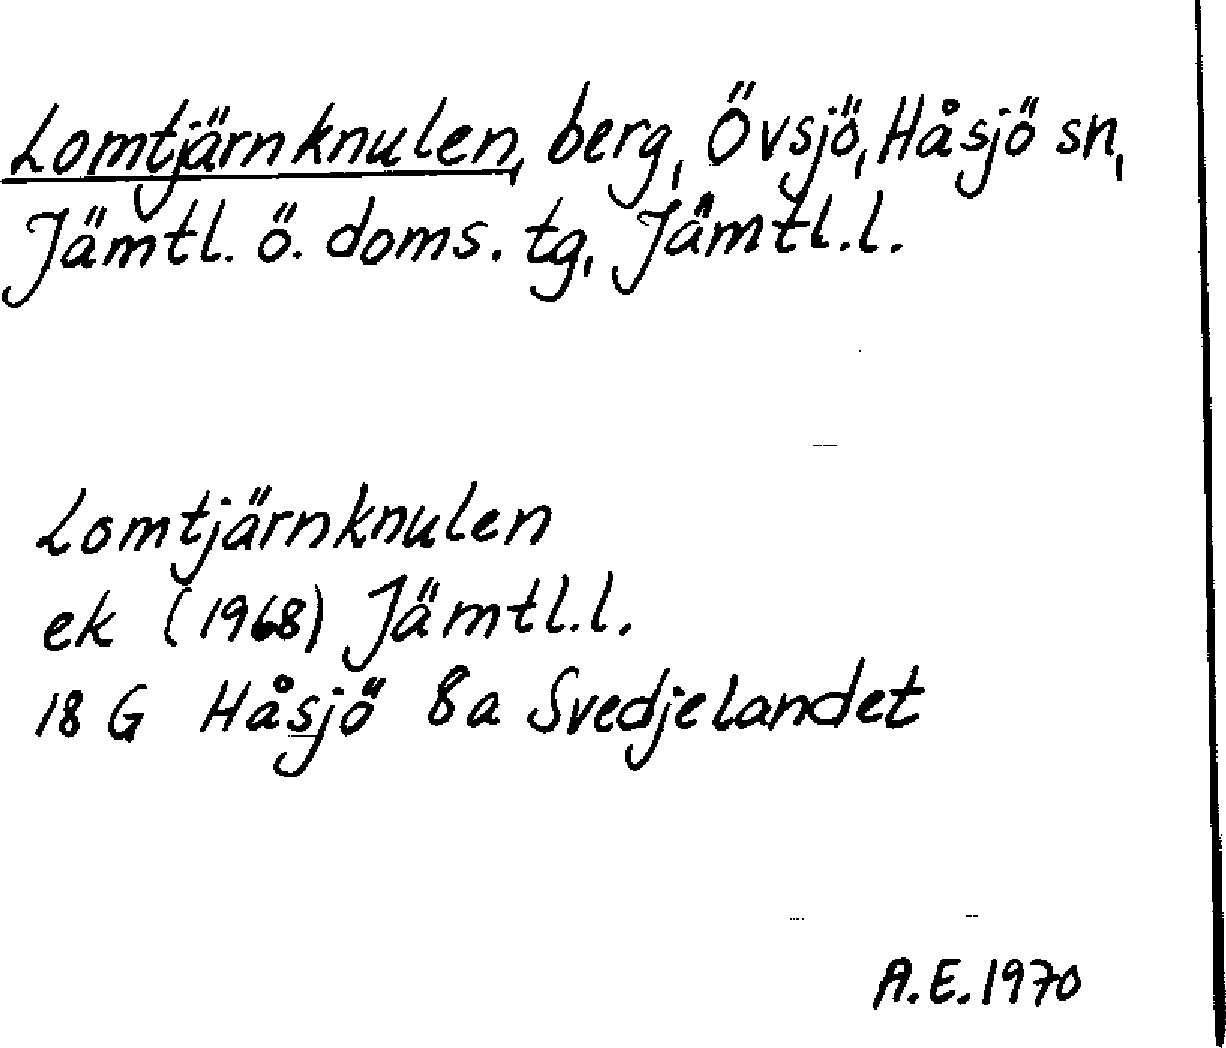 Lomtjärnknulen, berg, Övsjö, Håsjö sn,
Jämtl. ö. doms. tg, Jämtl.l.
Lomtjärnknulen
ek (1968) Jämtl.l.
18 G Håsjö 8a Svedjelandet
A.E. 1970